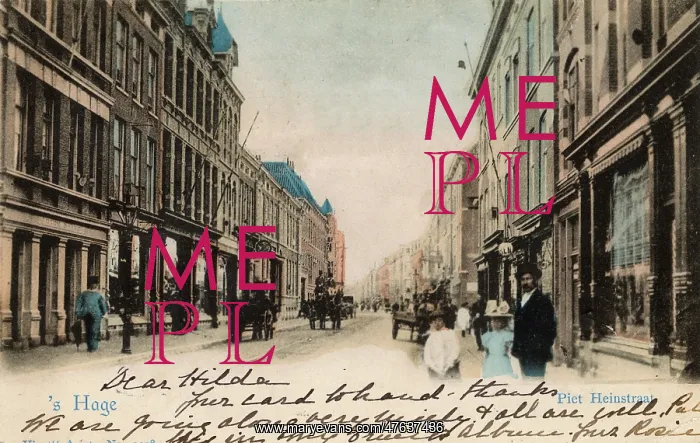 ME
PL
ME
PL
's Hage
Piet Heinstraat
Dear Hilda
your card to hand - thanks
We are going along very nicely & all are well.
album. your
www.maryevans.com/47637436